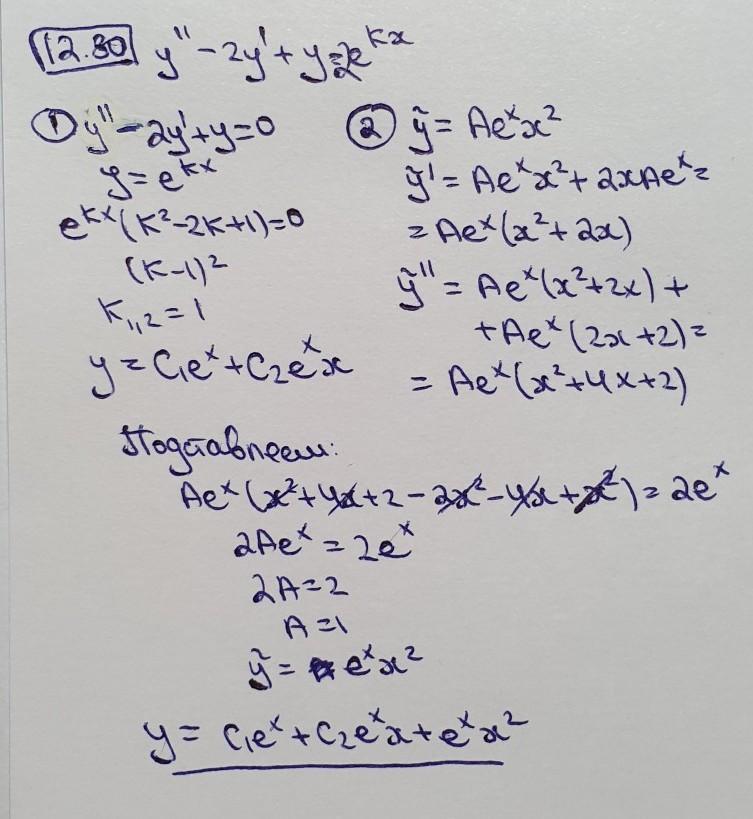 12.80 y'' - 2y' + y = 2e^{kx}
① y'' - 2y' + y = 0
y = e^{kx}
e^{kx}(k² - 2k + 1) = 0
(k - 1)²
k₁,₂ = 1
y = C₁e^x + C₂e^x x
② ỹ = Ae^x x²
ỹ' = Ae^x x² + 2xAe^x =
= Ae^x(x² + 2x)
ỹ'' = Ae^x(x² + 2x) +
+ Ae^x(2x + 2) =
= Ae^x(x² + 4x + 2)
Подставляем:
Ae^x(x² + 4x + 2 - 2x² - 4x + x²) = 2e^x
2Ae^x = 2e^x
2A = 2
A = 1
ỹ = e^x x²
y = C₁e^x + C₂e^x x + e^x x²